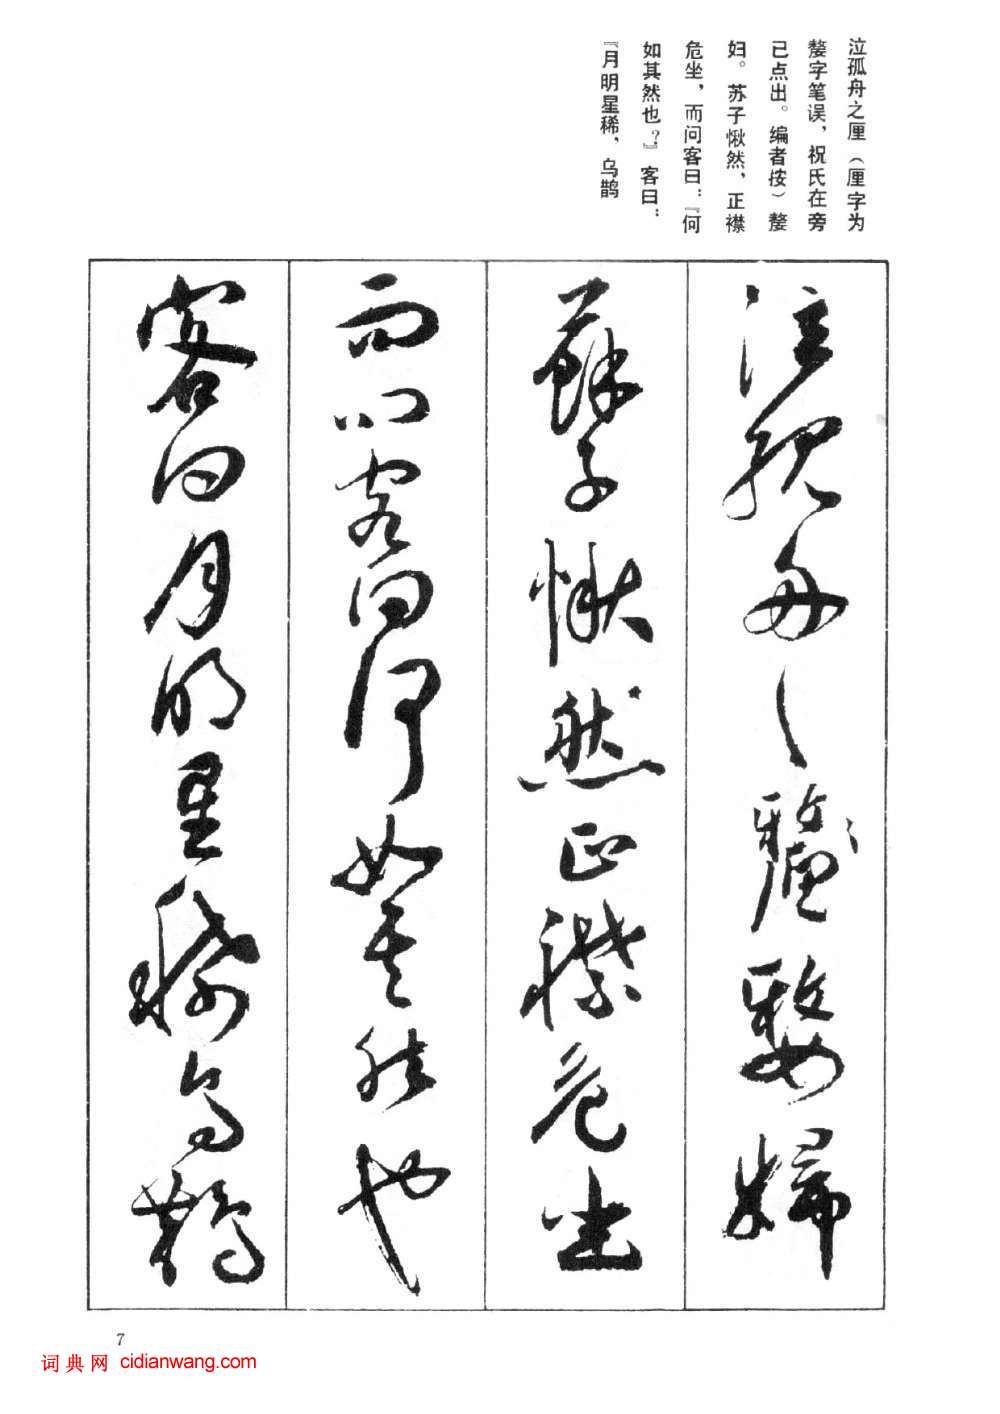 泣孤舟之厘（厘字为
嫠字笔误，祝氏在旁
已点出。编者按）嫠
妇。苏子愀然，正襟
危坐，而问客曰：『何
如其然也？』客曰：
『月明星稀，乌鹊
泣孤舟之釐嫠婦
蘇子愀然正襟危坐
而问客曰何如其然也
客曰月明星稀乌鹊
7
词典网 cidianwang.com